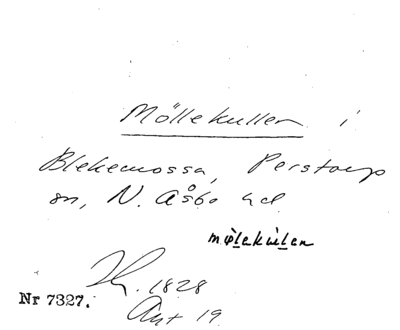 Möllekullen i
Blekemossa, Perstorp
sn, N. Åsbo hd
møllekúllen
1828
Nr 7327.
Ant 19